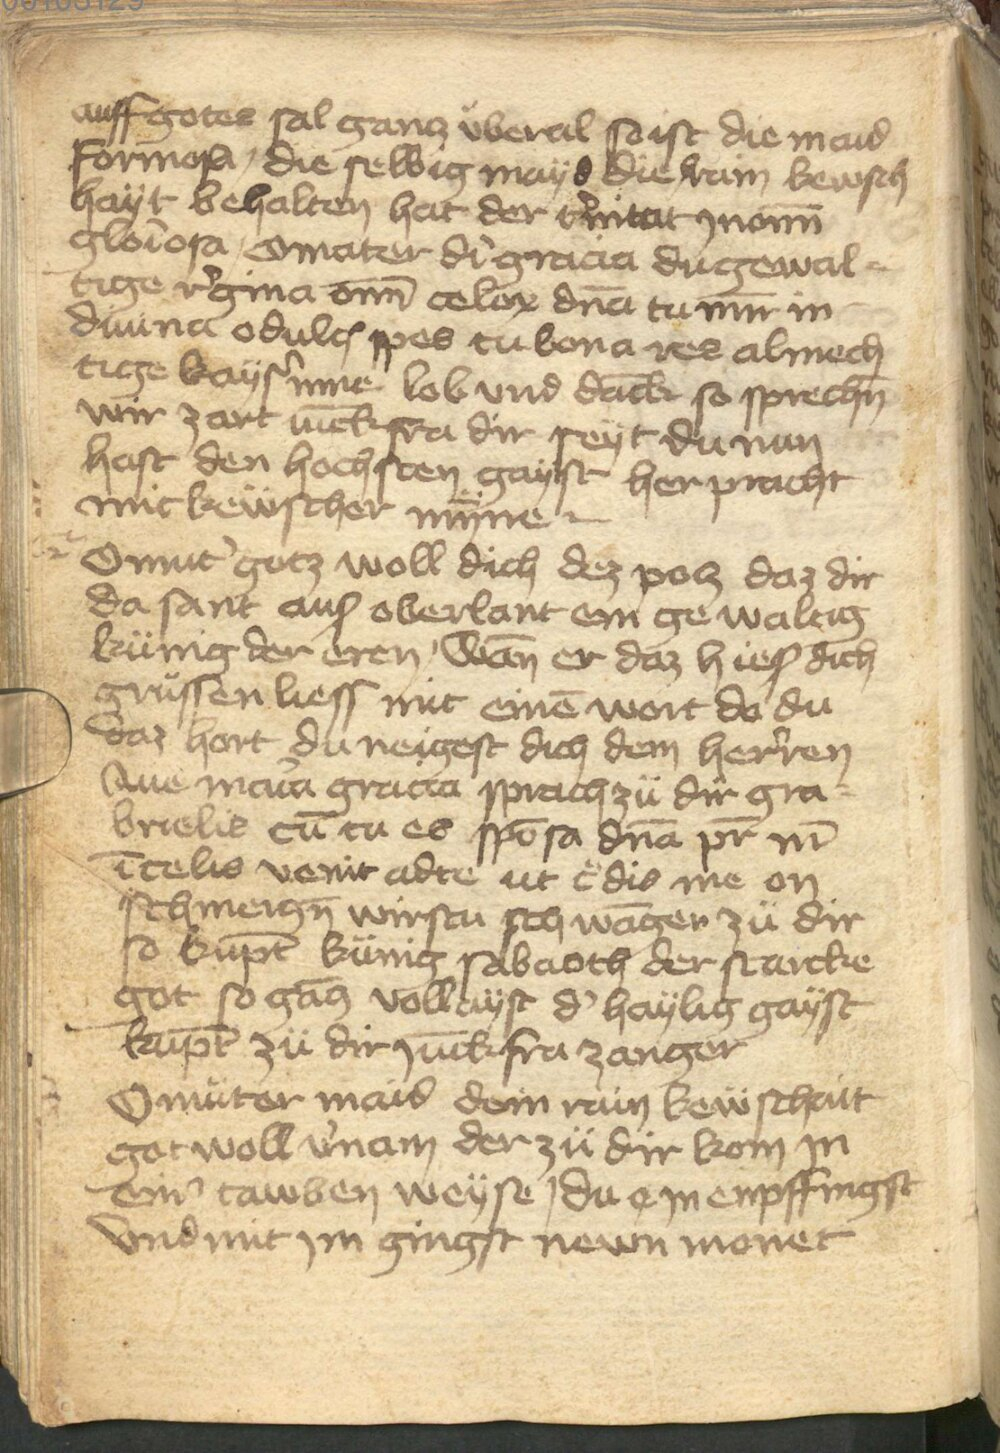 00105129
auff gotes sal gancz überal so ist die maid
formosa / die selbig mayd die rain kewsch
hayt behalten hat der t'nitat jnom̄
gloiosa / O mater di' gracia du gewal-
tige r'gina om̄ celox dn̄a tu mīr in
diuina o dulcz spes tu bona res almech
tige kays'inne lob vnd dāck so sprechn̄
wir zart iūckfra dir seyt du nun
hast den hochsten gayst her pracht
mit kewscher mÿnne
O mut' gotz woll dich dez polz daz dir
da sant aus oberlant ein ge waltig
künig der eren / Wān er daz hies dich
grüssen liess mit einē wort do du
daz hort du neigest dich dem her'ren
Aue maria gracia sprach zü dir gra-
brielis cū tu es spōsa dn̄a pr̄ m̄
ī celis venit ad te ut c'dis me on
schmerczn̄ wirstu schwāger zü dir
so kupt̄ künig sabaoth der starcke
got so gācz vollaÿst d' haylig gayst
kūpt zü dir jūckfra zanger
O müter maid dein rain kewschait
got woll v'nam der zü dir kom jn
ein' tawben weyse / du e jn enpffingst
Vnd mit jm gingst newn monet